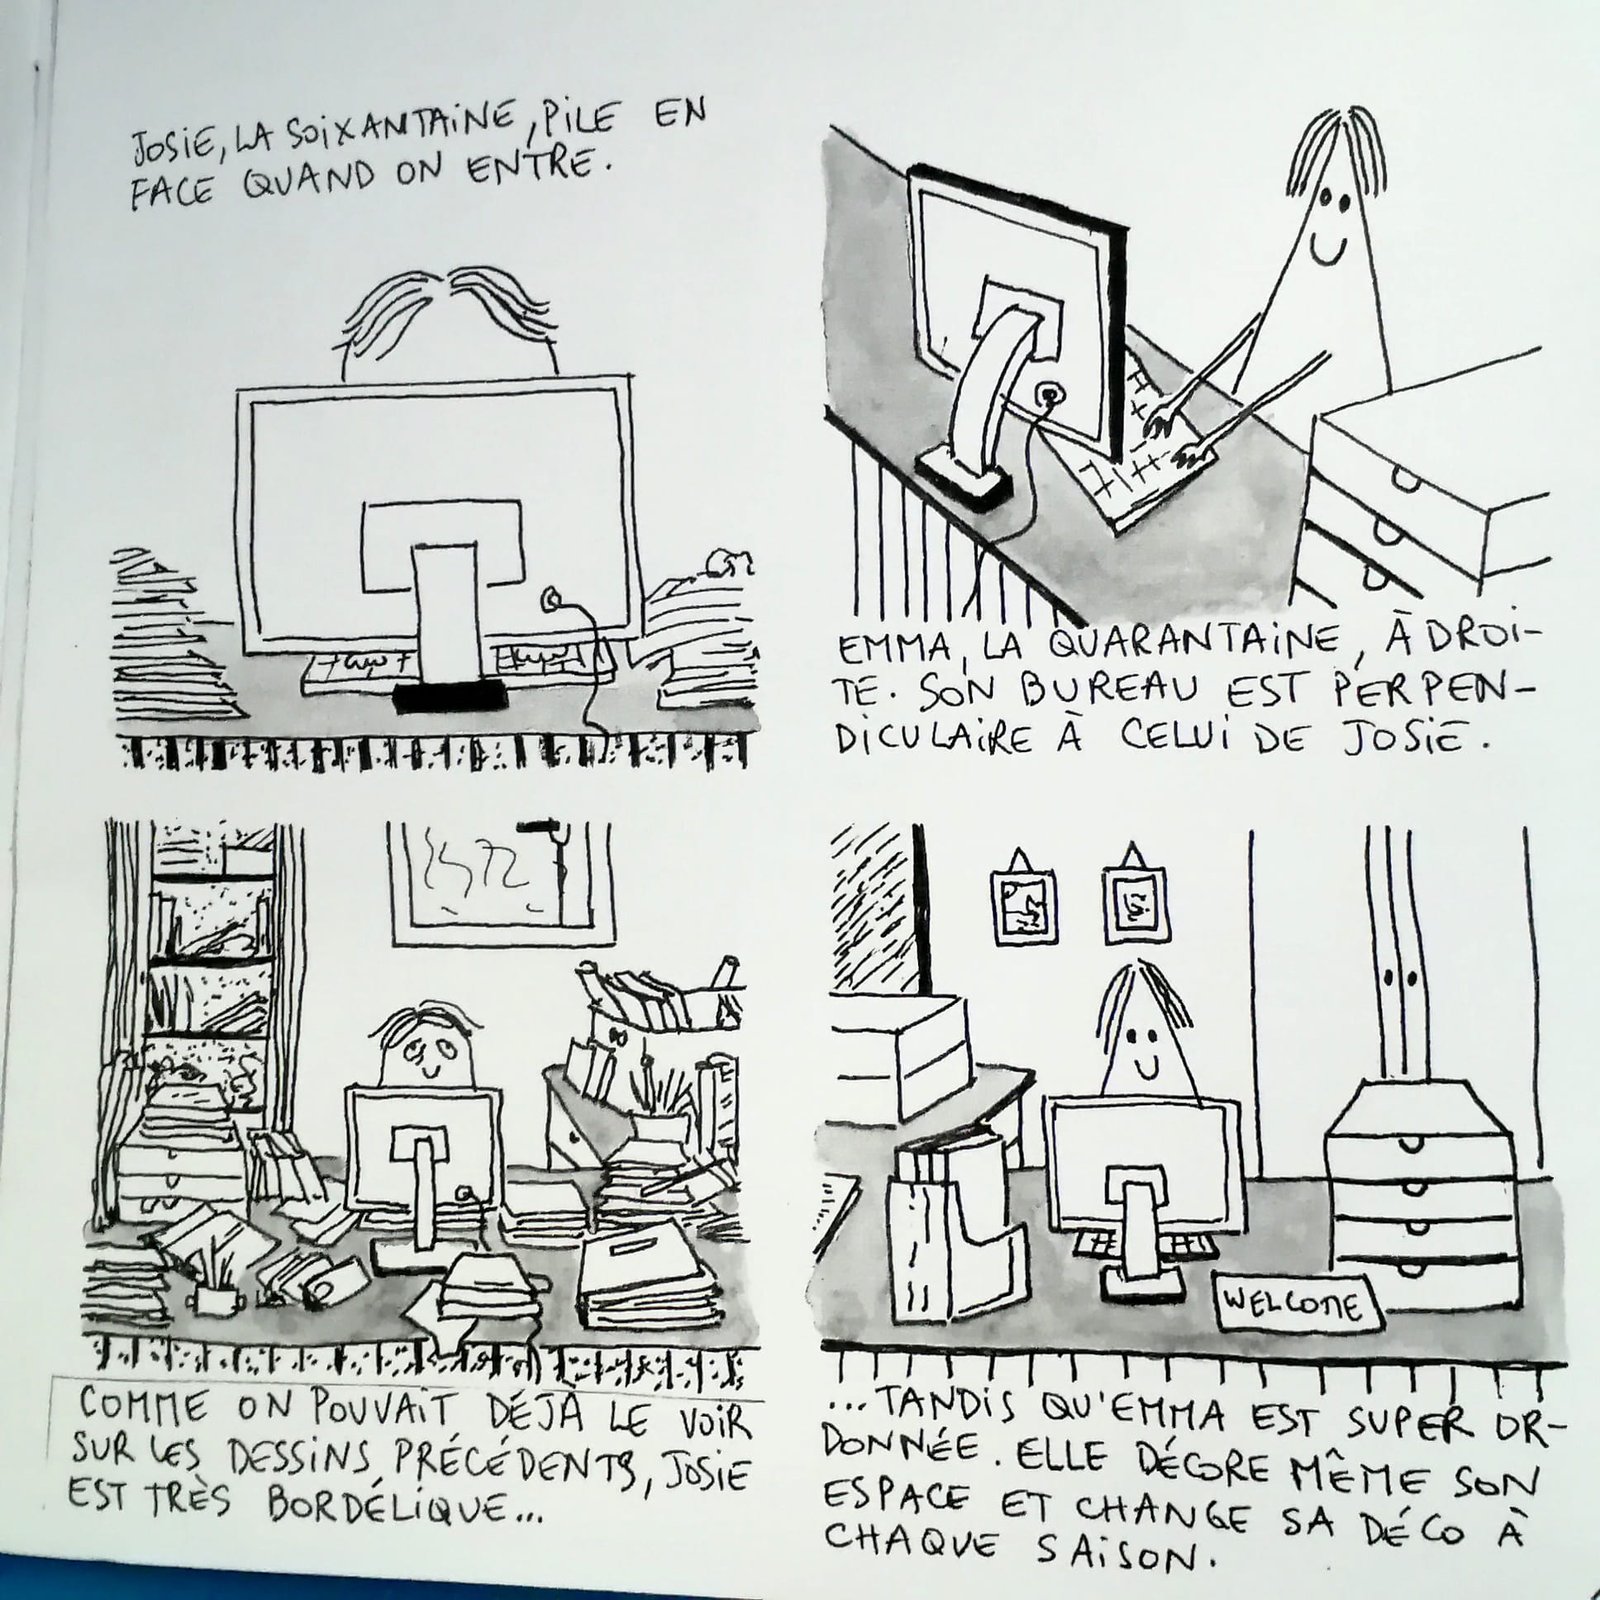 JOSIE, LA SOIXANTAINE, PILE EN
FACE QUAND ON ENTRE.
EMMA, LA QUARANTAINE, À DROI-
TE. SON BUREAU EST PERPEN-
DICULAIRE À CELUI DE JOSIE.
COMME ON POUVAIT DÉJÀ LE VOIR
SUR LES DESSINS PRÉCÉDENTS, JOSIE
EST TRÈS BORDÉLIQUE...
WELCOME
...TANDIS QU'EMMA EST SUPER OR-
DONNÉE. ELLE DÉCORE MÊME SON
ESPACE ET CHANGE SA DÉCO À
CHAQUE SAISON.